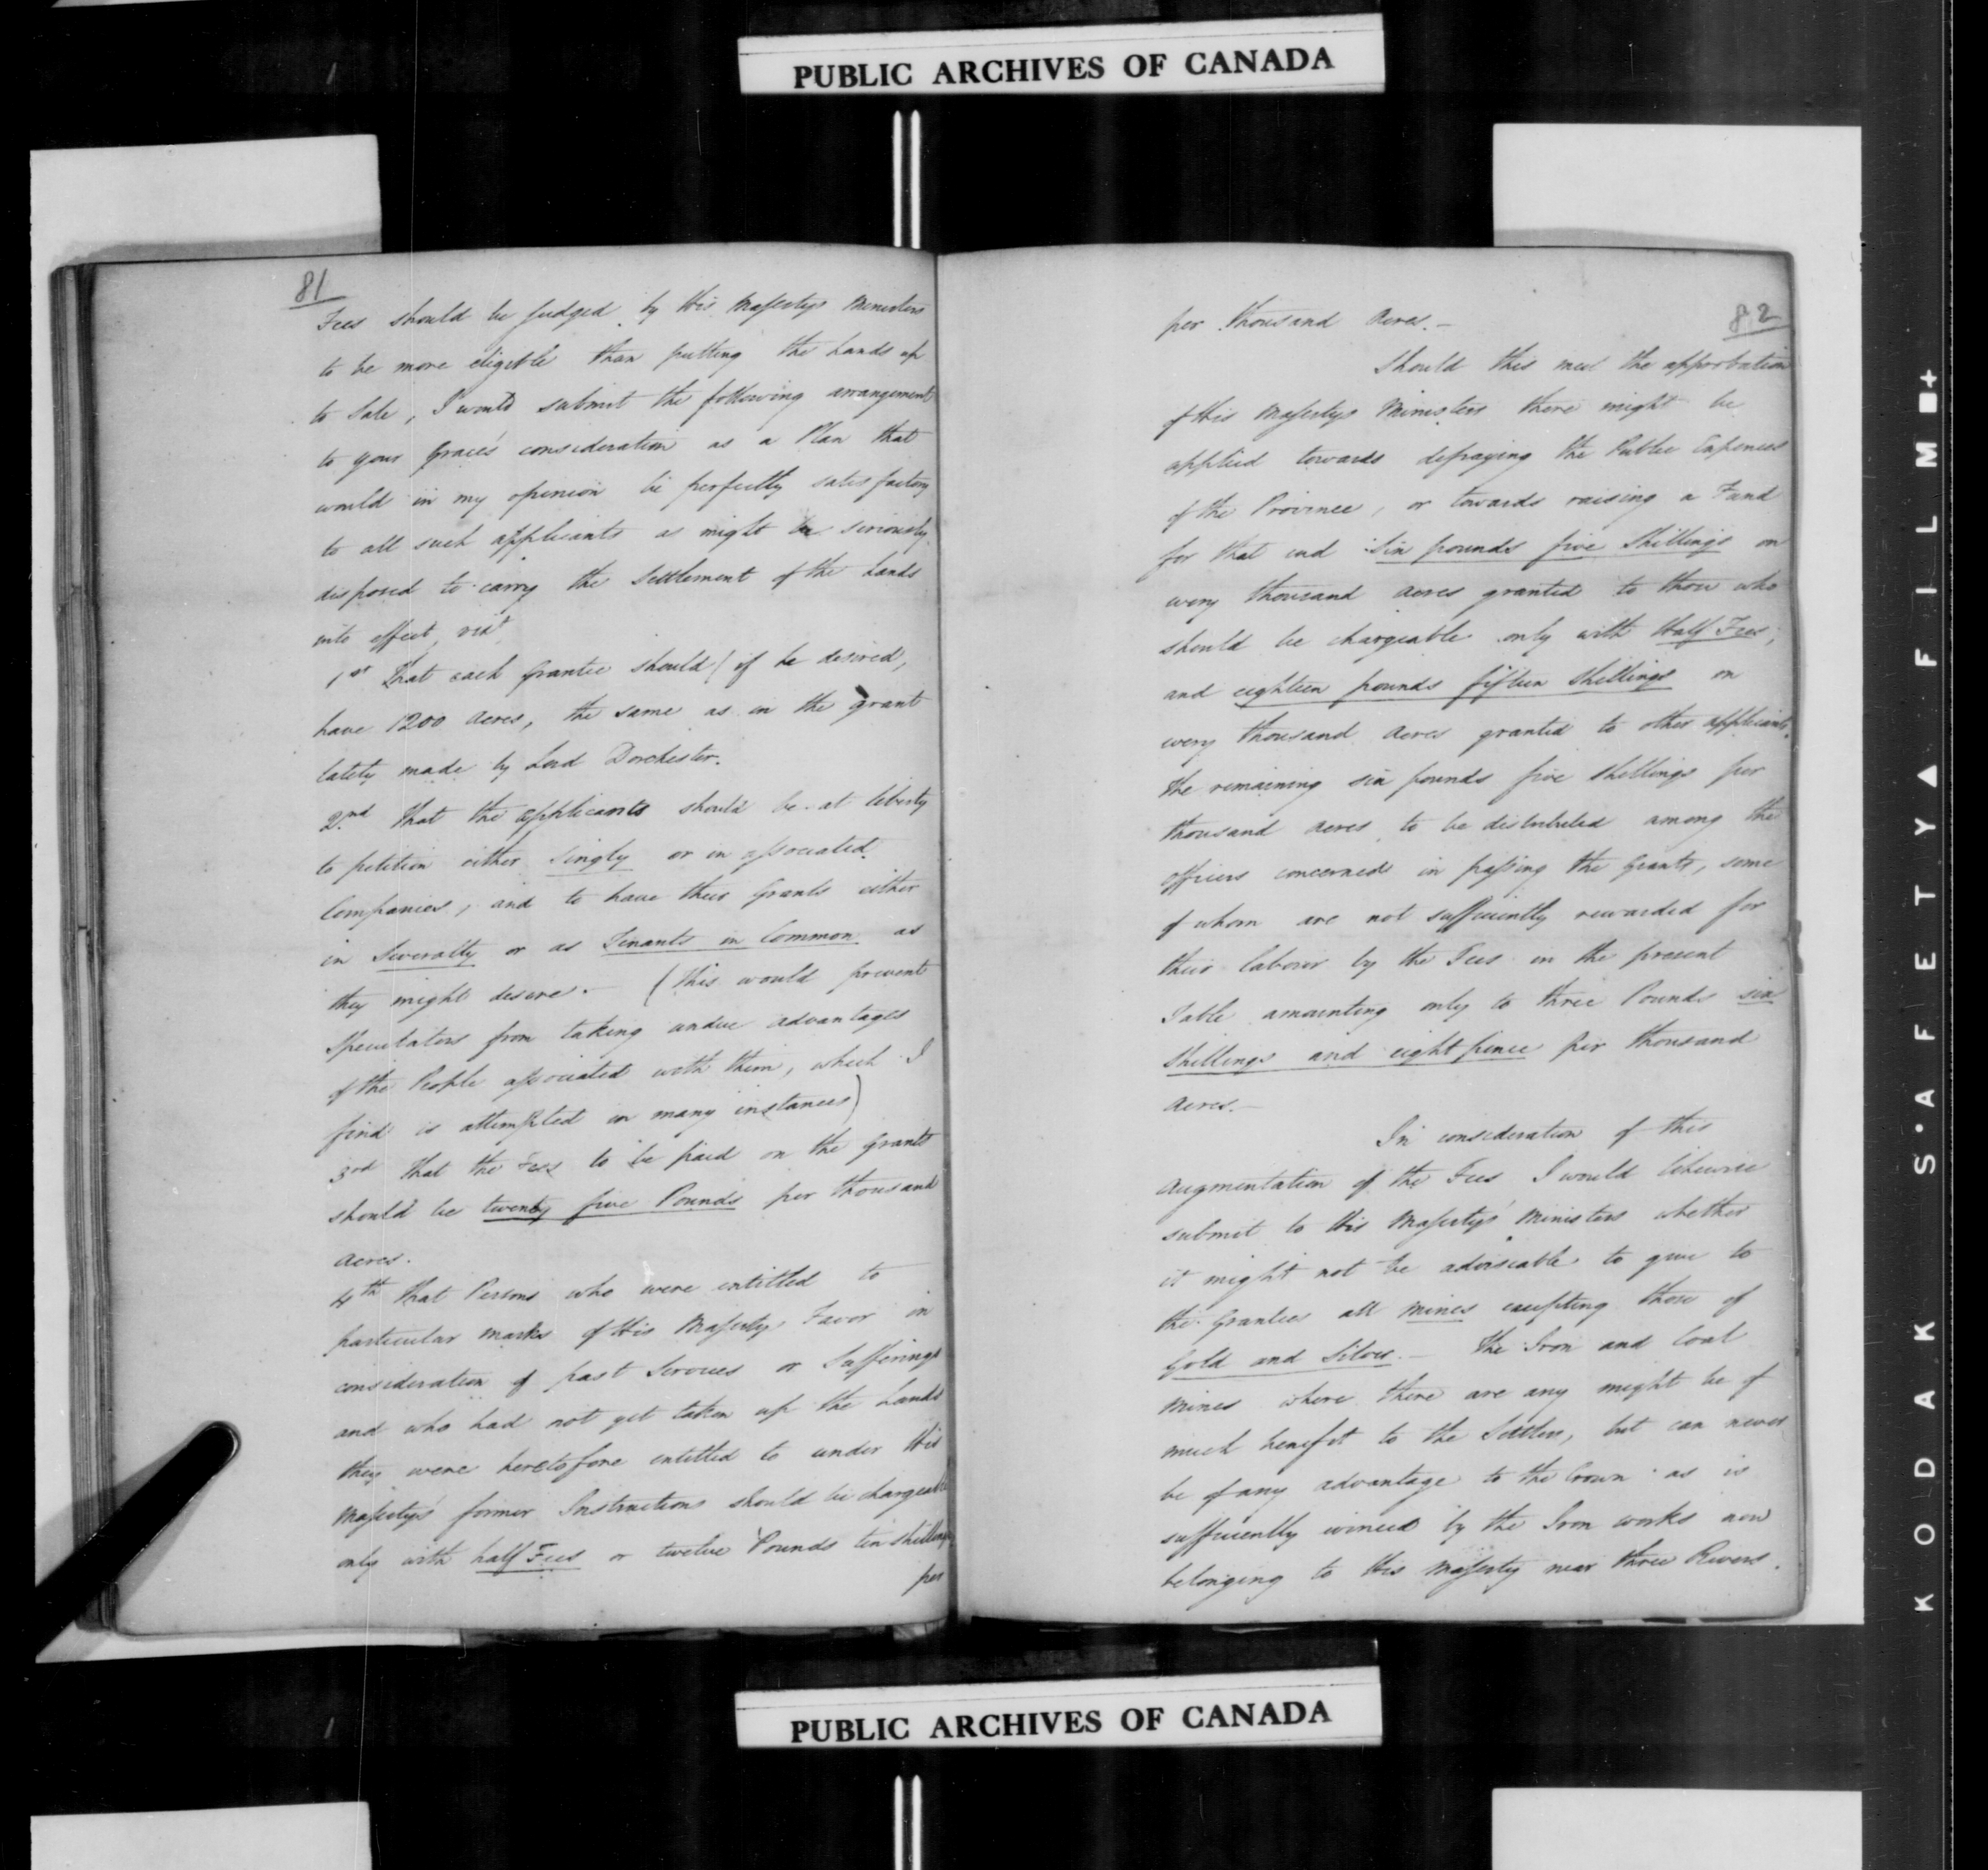 PUBLIC ARCHIVES OF CANADA
81
Fees should be judged by His Majestys Ministers
to be more eligible than putting the Lands up
to Sale, I would submit the following arrangement
to your Grace's consideration as a Plan that
would in my opinion be perfectly satisfactory
to all such applicants as might be seriously
disposed to carry the Settlement of the Lands
into effect, vizt
1st That each Grantee should (if he desired,
have 1200 Acres, the same as in the grant
lately made by Lord Dorchester.
2nd That the applicants should be at liberty
to petition either singly or in associated
Companies, and to have their Grants either
in Severalty or as Tenants in Common as
they might desire.— (This would prevent
Speculators from taking undue advantages
of the People associated with them, which I
find is attempted in many instances)
3rd That the Fees to be paid on the Grants
should be twenty five Pounds per thousand
Acres.
4th That Persons who were entitled to
particular marks of His Majestys Favor in
consideration of past Services or Sufferings
and who had not yet taken up the Lands
they were heretofore entitled to under His
Majesty's former Instructions should be chargeable
only with half Fees or twelve Pounds ten shillings
per
82
per thousand Acres.—
Should this meet the approbation
of His Majestys Ministers there might be
applied towards defraying the Public Expences
of the Province, or towards raising a Fund
for that end Six pounds five Shillings on
every thousand acres granted to those who
should be chargeable only with Half Fees;
and eighteen pounds fifteen Shillings on
every thousand Acres granted to other applicants.
The remaining six pounds five shillings per
thousand acres to be distributed among the
Officers concerned in passing the Grants, some
of whom are not sufficiently rewarded for
their labour by the Fees in the present
Table amounting only to three Pounds six
Shillings and eight pence per thousand
Acres.—
In consideration of this
augmentation of the Fees I would likewise
submit to His Majesty's Ministers whether
it might not be adviseable to give to
the Grantees all Mines excepting those of
Gold and Silver.— The Iron and Coal
Mines where there are any might be of
much benefit to the Settlers, but can never
be of any advantage to the Crown as is
sufficiently evinced by the Iron works now
belonging to His Majesty near three Rivers.
PUBLIC ARCHIVES OF CANADA
KODAK S·AFETY▲FILM■+